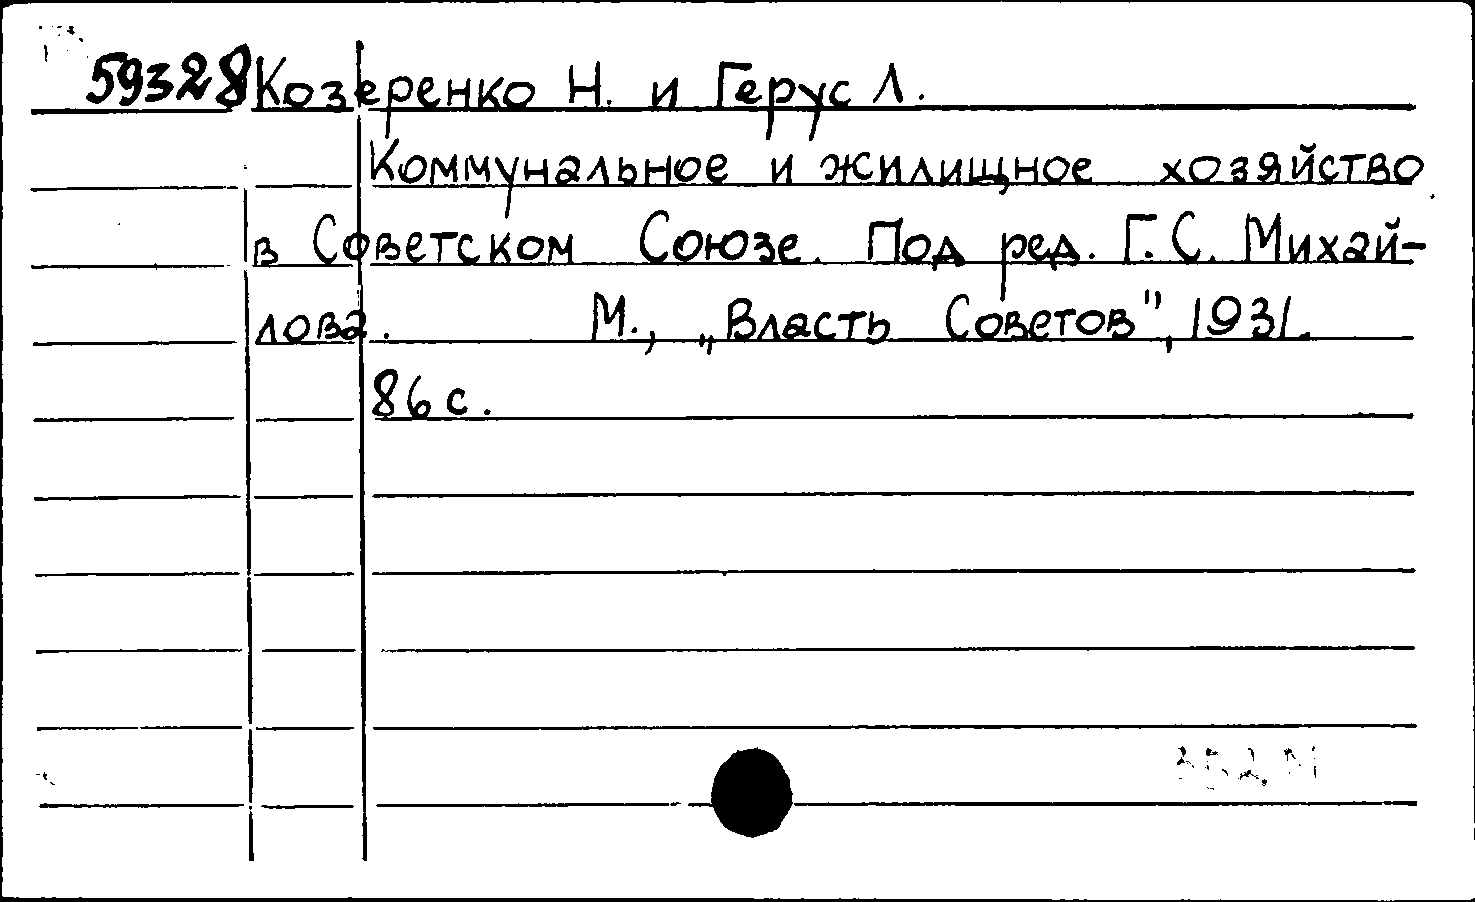 59328 Козеренко Н. и Герус Л.
Коммунальное и жилищное хозяйство
в Советском Союзе. Под ред. Г. С. Михай-
лова. М., „Власть Советов", 1931.
86 с.